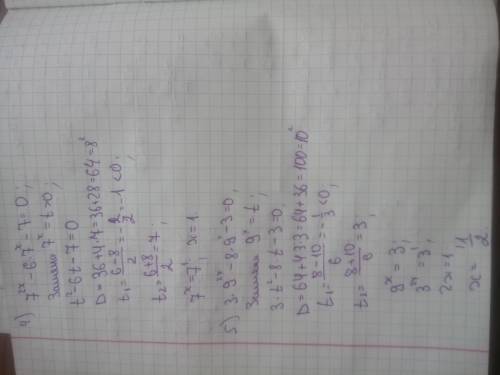 4) 7^{2x} - 6·7^x - 7 = 0;
Замена 7^x = t > 0;
t² - 6t - 7 = 0
D = 36 + 4·7 = 36 + 28 = 64 = 8²
t₁ = (6-8)/2 = -2/2 = -1 < 0;
t₂ = (6+8)/2 = 7;
7^x = 7¹; x = 1
5) 3·9^{2x} - 8·9^x - 3 = 0;
Замена 9^x = t;
3·t² - 8t - 3 = 0;
D = 64 + 4·3·3 = 64 + 36 = 100 = 10²
t₁ = (8-10)/6 = -1/3 < 0;
t₂ = (8+10)/6 = 3;
9^x = 3;
3^{2x} = 3¹;
2x = 1
x = 1/2